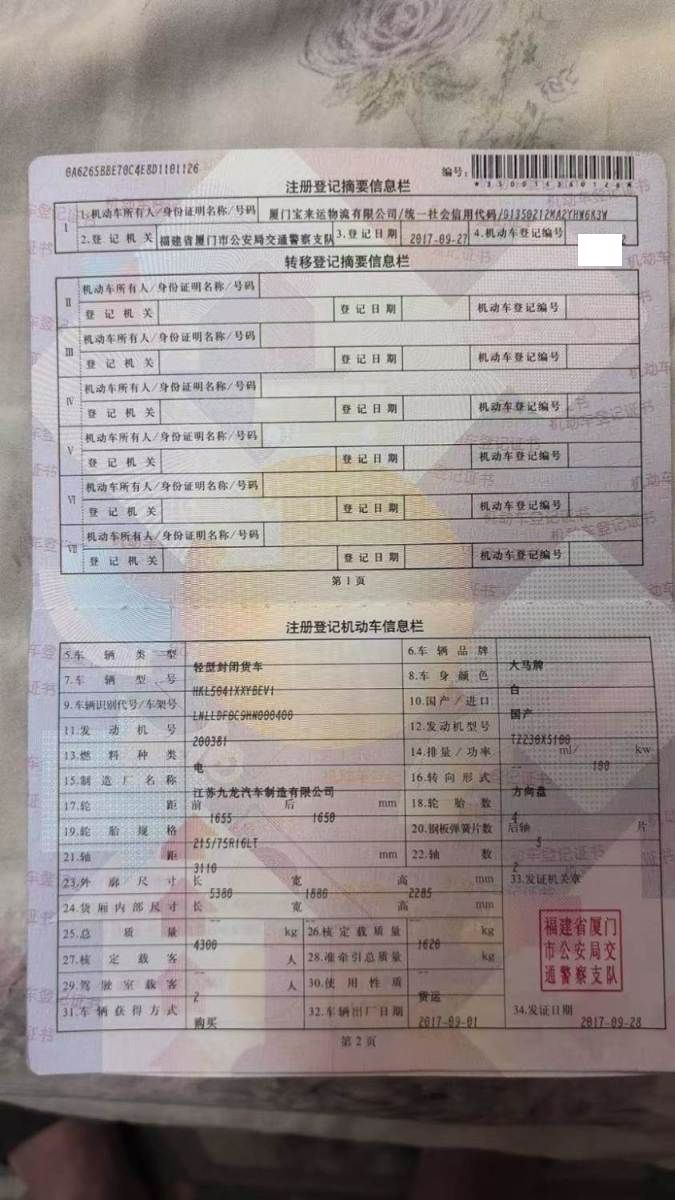 0A6265BBE70C4E8D1101126
编号:
*350014360126*
注册登记摘要信息栏
I 1.机动车所有人/身份证明名称/号码 厦门宝来运物流有限公司/统一社会信用代码/91350212MA2YHW6K3W
2.登记机关 福建省厦门市公安局交通警察支队 3.登记日期 2017-09-27 4.机动车登记编号
转移登记摘要信息栏
II 机动车所有人/身份证明名称/号码
登记机关 登记日期 机动车登记编号
III 机动车所有人/身份证明名称/号码
登记机关 登记日期 机动车登记编号
IV 机动车所有人/身份证明名称/号码
登记机关 登记日期 机动车登记编号
V 机动车所有人/身份证明名称/号码
登记机关 登记日期 机动车登记编号
VI 机动车所有人/身份证明名称/号码
登记机关 登记日期 机动车登记编号
VII 机动车所有人/身份证明名称/号码
登记机关 登记日期 机动车登记编号
第1页
注册登记机动车信息栏
5.车辆类型 轻型封闭货车 6.车辆品牌 大马牌
7.车辆型号 HKL5041XXYBEV1 8.车身颜色 白
9.车辆识别代号/车架号 10.国产/进口 国产
11.发动机号 200381 12.发动机型号 TZ230XS100
13.燃料种类 电 14.排量/功率 -- ml/ 100 kw
15.制造厂名称 江苏九龙汽车制造有限公司 16.转向形式 方向盘
17.轮距 前 1655 后 1650 mm 18.轮胎数 4
19.轮胎规格 215/75R16LT 20.钢板弹簧片数 后轴 5 片
21.轴距 3110 mm 22.轴数 2
23.外廓尺寸 长 5380 宽 1880 高 2285 mm 33.发证机关章
24.货厢内部尺寸 长 -- 宽 -- 高 -- mm
25.总质量 4300 kg 26.核定载质量 1020 kg
27.核定载客 -- 人 28.准牵引总质量 -- kg
29.驾驶室载客 2 人 30.使用性质 货运
31.车辆获得方式 购买 32.车辆出厂日期 2017-09-01 34.发证日期 2017-09-28
福建省厦门
市公安局交
通警察支队
第2页